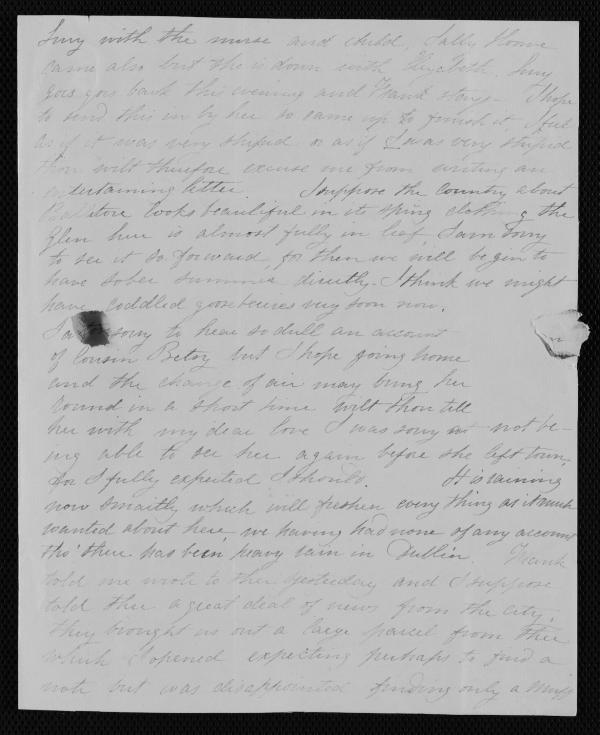 Lucy with the nurse and child, Sally Howe
came also but she is down with Elizabeth. Lucy
goes goes back this evening and Frank stays – I hope
to send this in by her so came up to finish it, I feel
as if it was very stupid or as if I was very stupid
thou wilt therefore excuse me from writing an
entertaining letter I suppose the country about
Ballitore looks beautiful in its spring clothing the
Glen here is almost fully in leaf, I am sorry
to see it so forward, for then we will begin to
have sober summer directly. I think we might
have coddled gooseberries very soon now.
I am sorry to hear so dull an account
of Cousin Betsy but I hope going home
and the change of air may bring her
round in a short time wilt thou tell
her with my dear love I was sorry not be-
ing able to see her again before she left town,
for I fully expected I should. It is raining
now smartly which will freshen every thing as it much
wanted about here, we having had none of any account
tho' there has been heavy rain in Dublin. Frank
told me wrote to thee yesterday and I suppose
told thee a great deal of news from the city,
they brought us out a large parcel from thee
which I opened expecting perhaps to find a
note but was disappointed finding only a